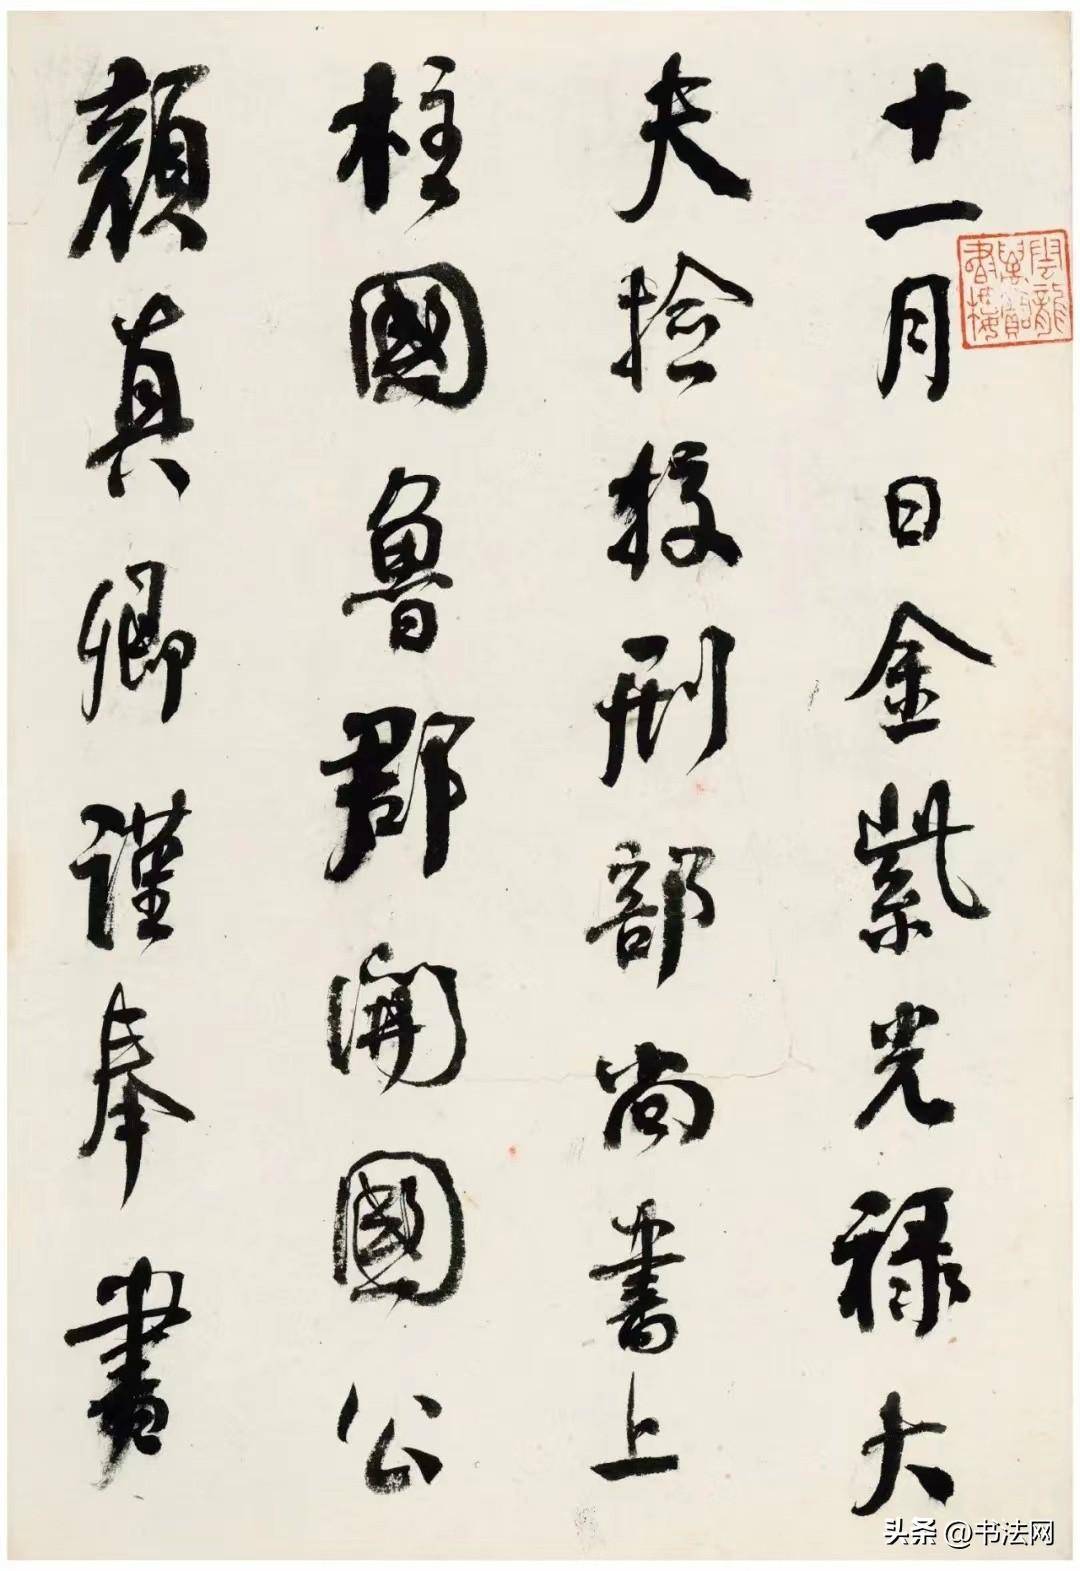 十一月日金紫光禄大
夫捡挍刑部尚書上
柱國魯郡開國公
顏真卿謹奉書
头条 @书法网